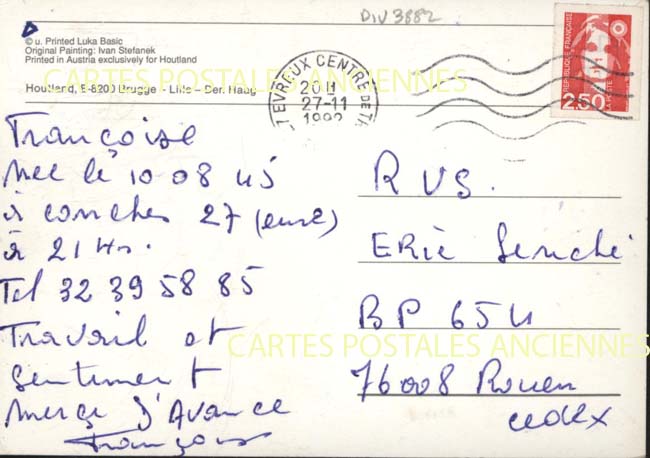 DIV 3882
© u. Printed Luka Basic
Original Painting: Ivan Stefanek
Printed in Austria exclusively for Houtland
CARTES POSTALES ANCIENNES
Houtland, B-8200 Brugge - Lille - Den Haag
EVREUX CENTRE DE TRI
20H
27-11
1992
REPUBLIQUE FRANÇAISE
LA POSTE
2,50
Françoise
Nee le 10 08 45
à conches 27 (eure)
à 21 Hs.
Tel 32 39 58 85
Travail et
Sentiment
merçi d'Avance
Françoise
RVS.
ERic
BP 654
CARTES POSTALES ANCIENNES
76008 Rouen
cedex